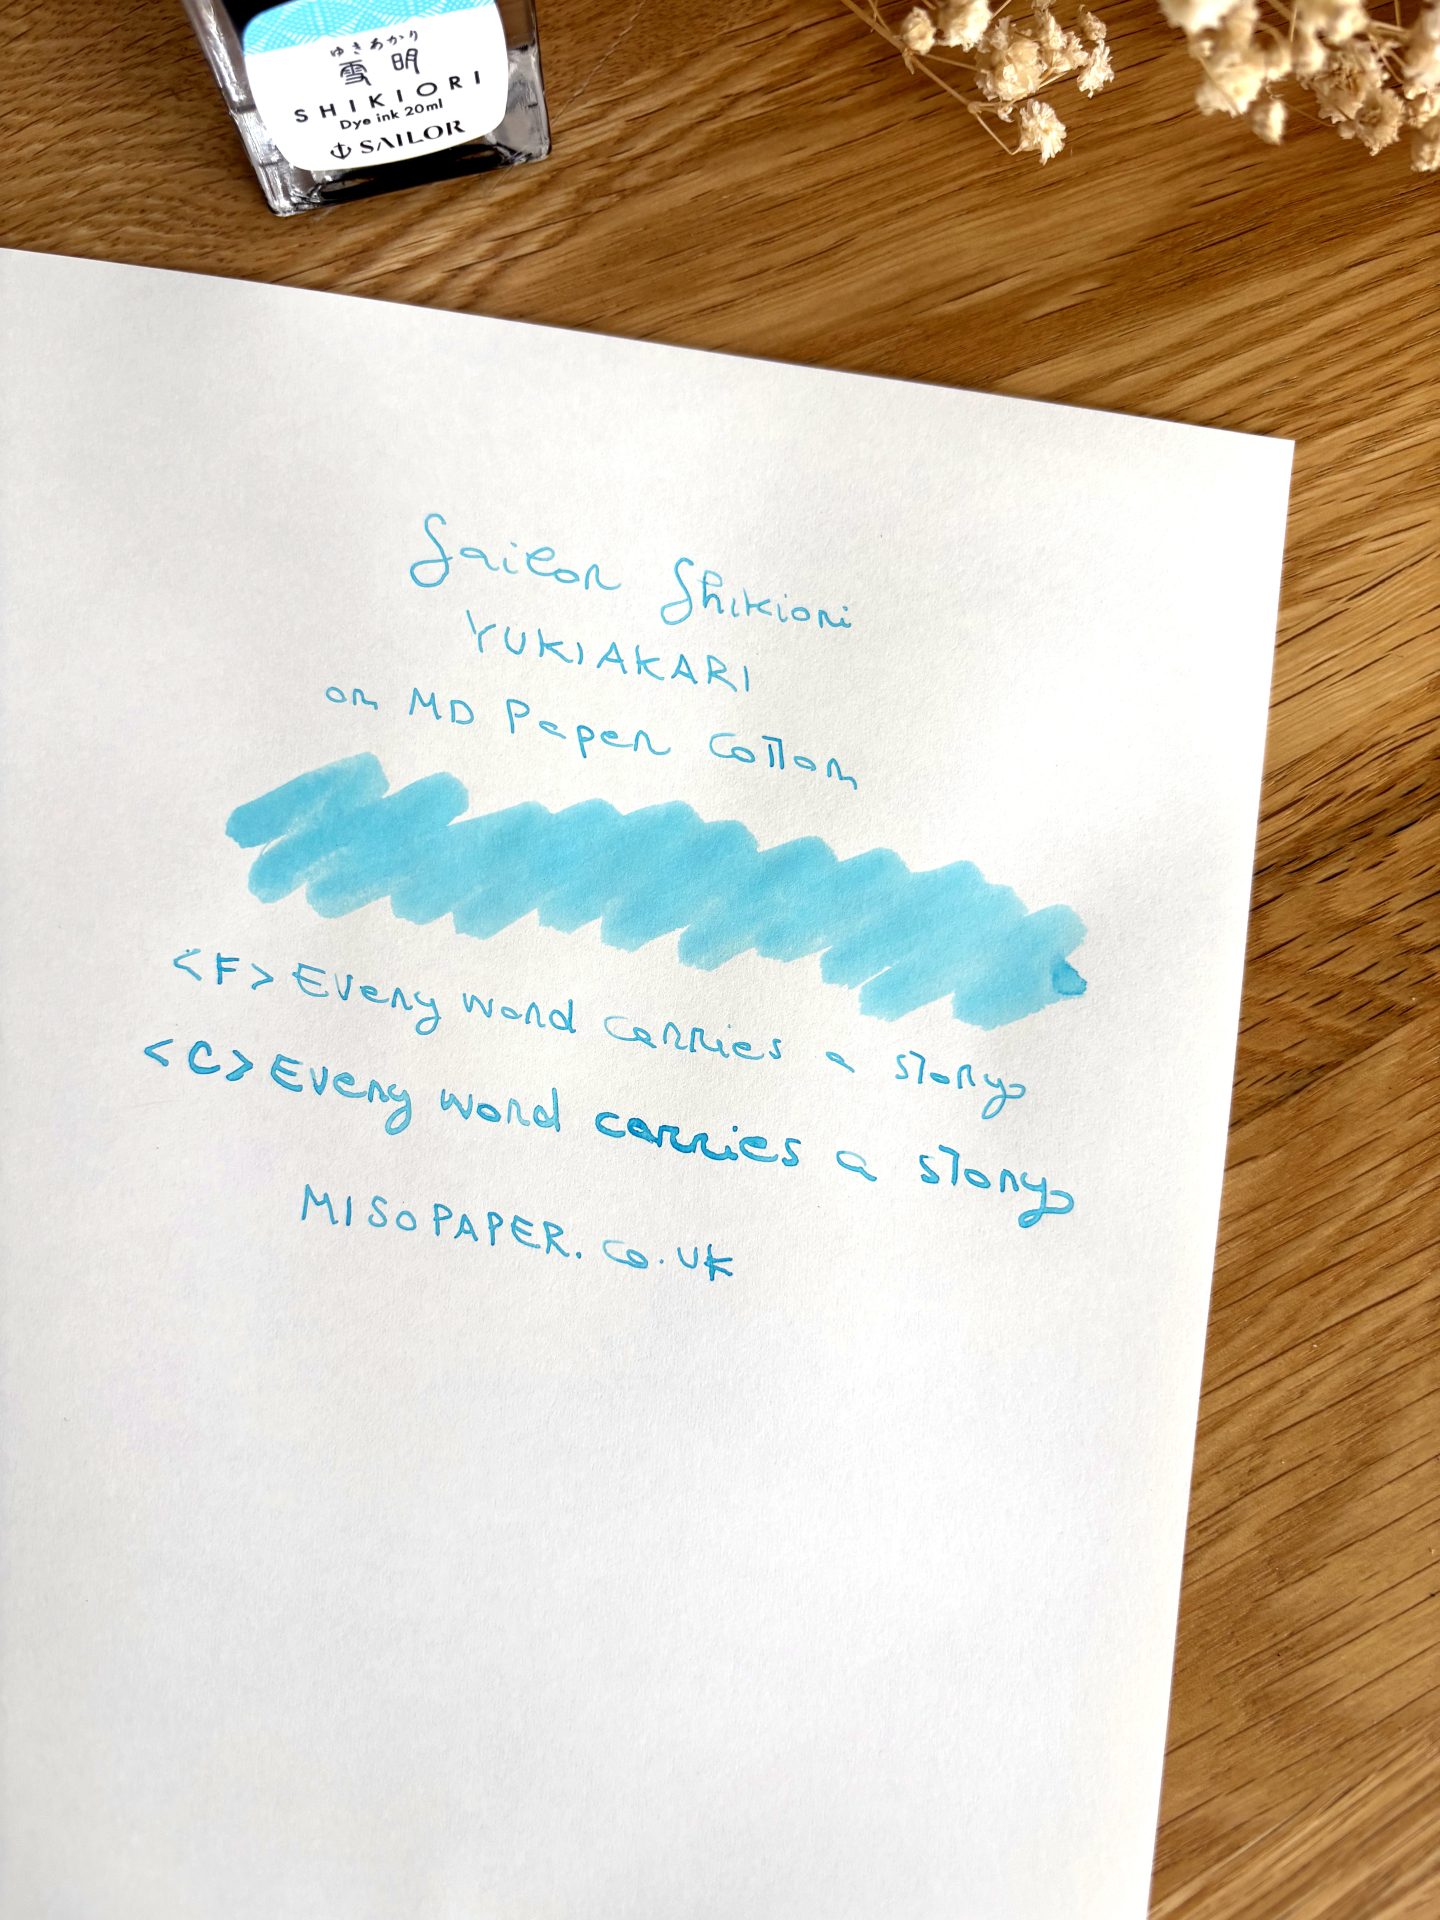 ゆきあかり
雪明
SHIKIORI
Dye ink 20ml
SAILOR
Sailor Shikiori
YUKIAKARI
on MD Paper Cotton
<F> Every word carries a story
<C> Every word carries a story
MISOPAPER.co.uk